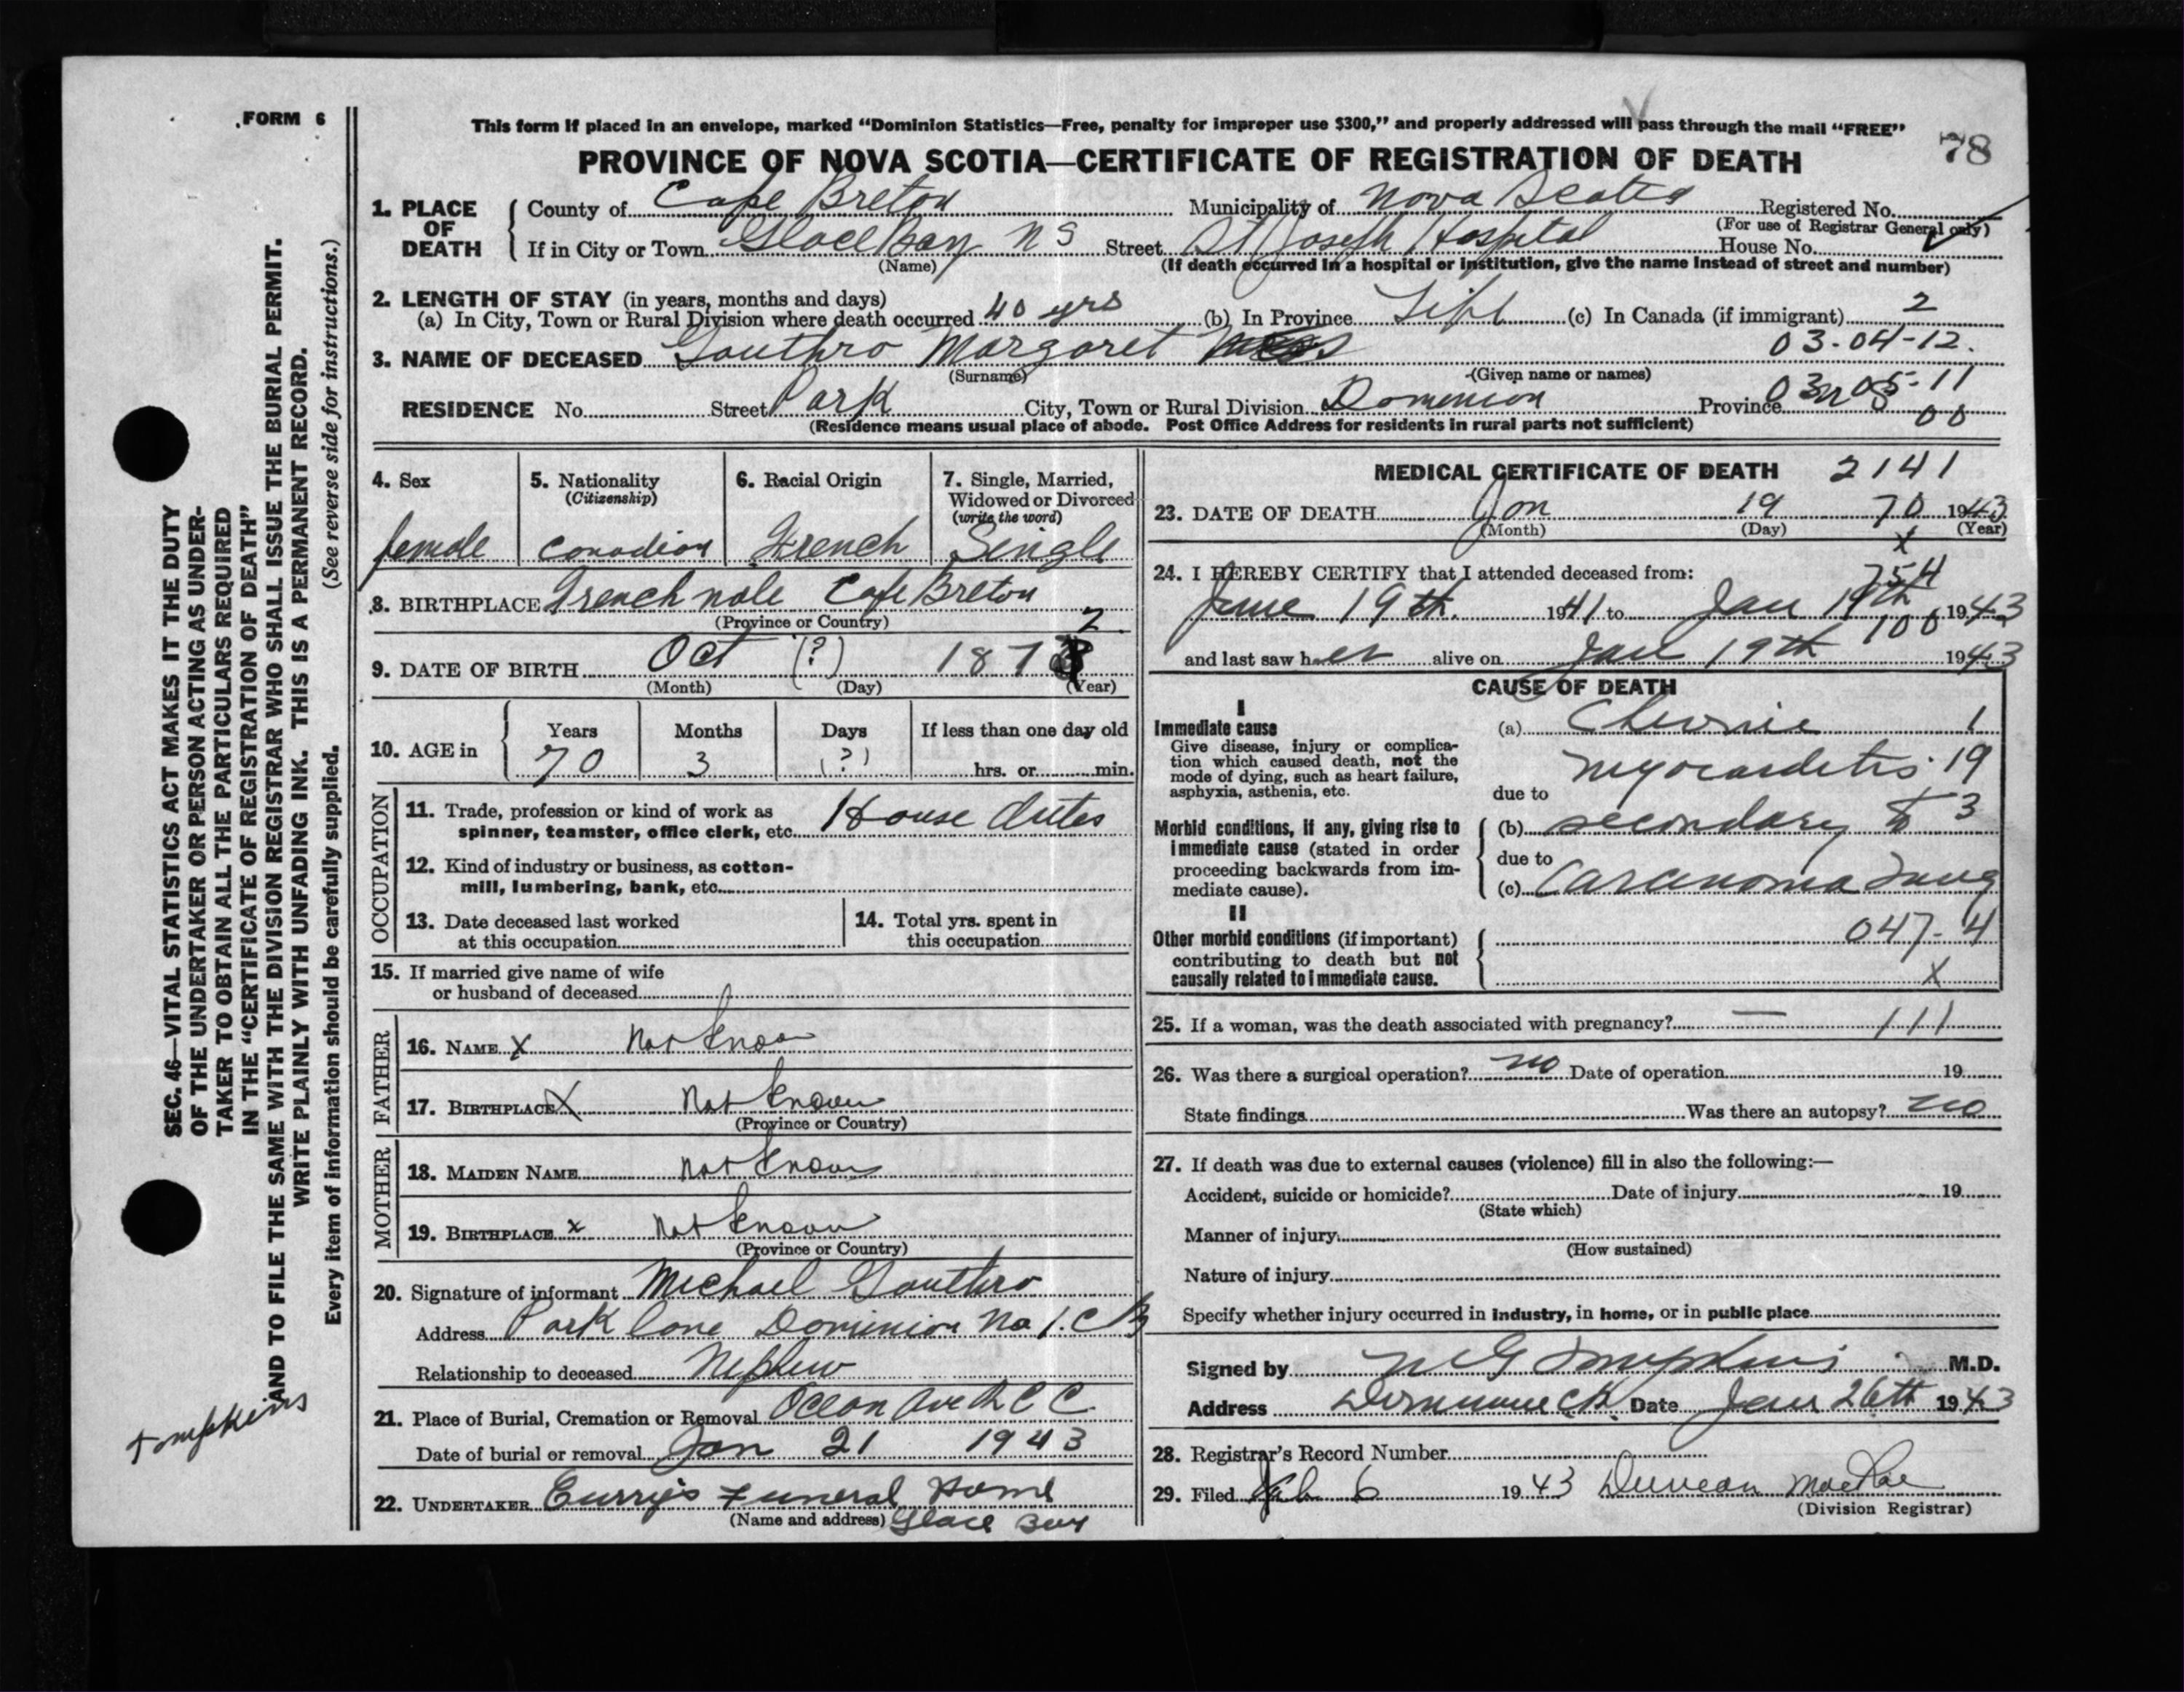 FORM 6
This form if placed in an envelope, marked “Dominion Statistics—Free, penalty for improper use $300,” and properly addressed will pass through the mail “FREE”
78
PROVINCE OF NOVA SCOTIA—CERTIFICATE OF REGISTRATION OF DEATH
1. PLACE OF DEATH
County of Cape Breton Municipality of Nova Scotia Registered No.
(For use of Registrar General only)
If in City or Town Glace Bay N S Street St Joseph Hospital House No.
(Name) (If death occurred in a hospital or institution, give the name instead of street and number)
2. LENGTH OF STAY (in years, months and days)
(a) In City, Town or Rural Division where death occurred 40 yrs (b) In Province Life (c) In Canada (if immigrant) 2
3. NAME OF DECEASED Gouthro Margaret 03-04-12.
(Surname) (Given name or names)
RESIDENCE No. Street Park City, Town or Rural Division Dominion Province 05-11
00
(Residence means usual place of abode. Post Office Address for residents in rural parts not sufficient)
4. Sex
female
5. Nationality
(Citizenship)
Canadian
6. Racial Origin
French
7. Single, Married,
Widowed or Divorced
(write the word)
Single
8. BIRTHPLACE Frenchvale Cape Breton
(Province or Country)
2
9. DATE OF BIRTH Oct (?) 187
(Month) (Day) (Year)
10. AGE in
Years Months Days If less than one day old
70 3 (?) hrs. or min.
OCCUPATION
11. Trade, profession or kind of work as
spinner, teamster, office clerk, etc. House duties
12. Kind of industry or business, as cotton-
mill, lumbering, bank, etc.
13. Date deceased last worked
at this occupation
14. Total yrs. spent in
this occupation
15. If married give name of wife
or husband of deceased
FATHER
16. NAME X Not know
17. BIRTHPLACE X Not known
(Province or Country)
MOTHER
18. MAIDEN NAME Not known
19. BIRTHPLACE x Not known
(Province or Country)
20. Signature of informant Michael Gouthro
Address Park lane Dominion No 1. C B
Relationship to deceased Nephew
21. Place of Burial, Cremation or Removal Ocean Ave R C C
Date of burial or removal Jan 21 1943
22. UNDERTAKER Curry's Funeral Home
(Name and address) Glace Bay
MEDICAL CERTIFICATE OF DEATH 2141
23. DATE OF DEATH Jan 19 70 1943
(Month) (Day) (Year)
x
24. I HEREBY CERTIFY that I attended deceased from:
754
June 19th. 1941 to Jan 19th 1943
100
and last saw her alive on Jan 19th 1943
CAUSE OF DEATH
I
Immediate cause
Give disease, injury or complica-
tion which caused death, not the
mode of dying, such as heart failure,
asphyxia, asthenia, etc.
(a) Chronic 1
Myocarditis 19
due to
Morbid conditions, if any, giving rise to
immediate cause (stated in order
proceeding backwards from im-
mediate cause).
(b) secondary to 3
due to
(c) Carcinoma Lung
II
Other morbid conditions (if important)
contributing to death but not
causally related to immediate cause.
047-4
X
25. If a woman, was the death associated with pregnancy? — 111
26. Was there a surgical operation? no Date of operation 19
State findings Was there an autopsy? no
27. If death was due to external causes (violence) fill in also the following:—
Accident, suicide or homicide? Date of injury 19
(State which)
Manner of injury
(How sustained)
Nature of injury
Specify whether injury occurred in industry, in home, or in public place
Signed by M G Tompkins M.D.
Address Date Jan 26th 1943
28. Registrar's Record Number
29. Filed Feb 6 1943 Duncan MacRae
(Division Registrar)
SEC. 46—VITAL STATISTICS ACT MAKES IT THE DUTY
OF THE UNDERTAKER OR PERSON ACTING AS UNDER-
TAKER TO OBTAIN ALL THE PARTICULARS REQUIRED
IN THE “CERTIFICATE OF REGISTRATION OF DEATH”
AND TO FILE THE SAME WITH THE DIVISION REGISTRAR WHO SHALL ISSUE THE BURIAL PERMIT.
WRITE PLAINLY WITH UNFADING INK. THIS IS A PERMANENT RECORD.
Every item of information should be carefully supplied. (See reverse side for instructions.)
Tompkins